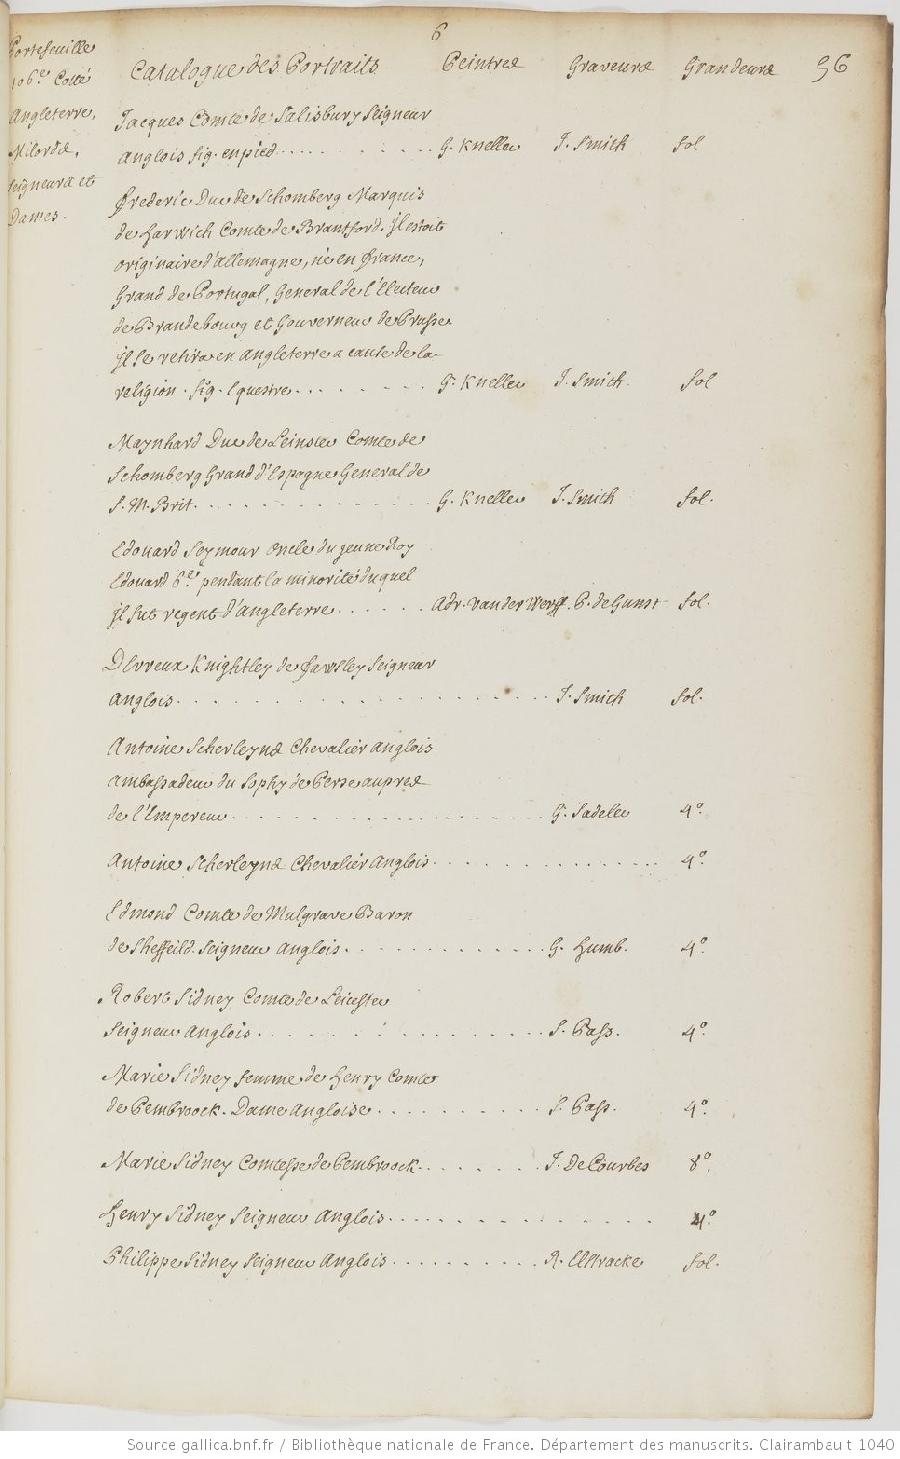 6
Portefeuille
106.e Cotté
Angleterre,
Milords,
Seigneurs et
Dames.
Catalogue des Portraits Peintres Graveurs Grandeurs 96
Jacques Comte de Salisbury Seigneur
Anglois fig. en pied G. Kneller J. Smich fol
Frederic Duc de Schomberg Marquis
de Harwich Comte de Brantford. Il estoit
originaire d'allemagne, né en France,
Grand de Portugal, General de l'Electeur
de Brandebourg et Gouverneur de Prusse
Il se retira en Angleterre a cause de la
religion. fig. Equestre G. Kneller J. Smich. fol
Maynhard Duc de Leinster Comte de
Schomberg Grand d'Espagne General de
S. M. Brit. G. Kneller J. Smich fol.
Edouard Seymour oncle du jeune Roy
Edouard 6.e pendant la minorité duquel
il fut regent d'Angleterre Adr. Vander Werff. P. de Gunst fol.
DEvreux Knightley de Fawsley Seigneur
Anglois. J. Smich fol.
Antoine Scherleyns Chevalier Anglois
Ambassadeur du Sophy de Perse auprés
de l'Empereur G. Sadeler 4.o
Antoine Scherleyns Chevalier Anglois 4.o
Edmond Comte de Mulgrave Baron
de Sheffeild. Seigneur Anglois. G. Humb. 4.o
Robert Sidney Comte de Leicester
Seigneur Anglois. S. Pass. 4.o
Marie Sidney femme de Henry Comte
de Pembroock. Dame Angloise S. Pass. 4.o
Marie Sidney Comtesse de Pembroock. J. De Courbes 8.o
Henry Sidney Seigneur Anglois. 4.o
Philippe Sidney Seigneur Anglois R. Elstracke fol.
Source gallica.bnf.fr / Bibliothèque nationale de France. Département des manuscrits. Clairambault 1040